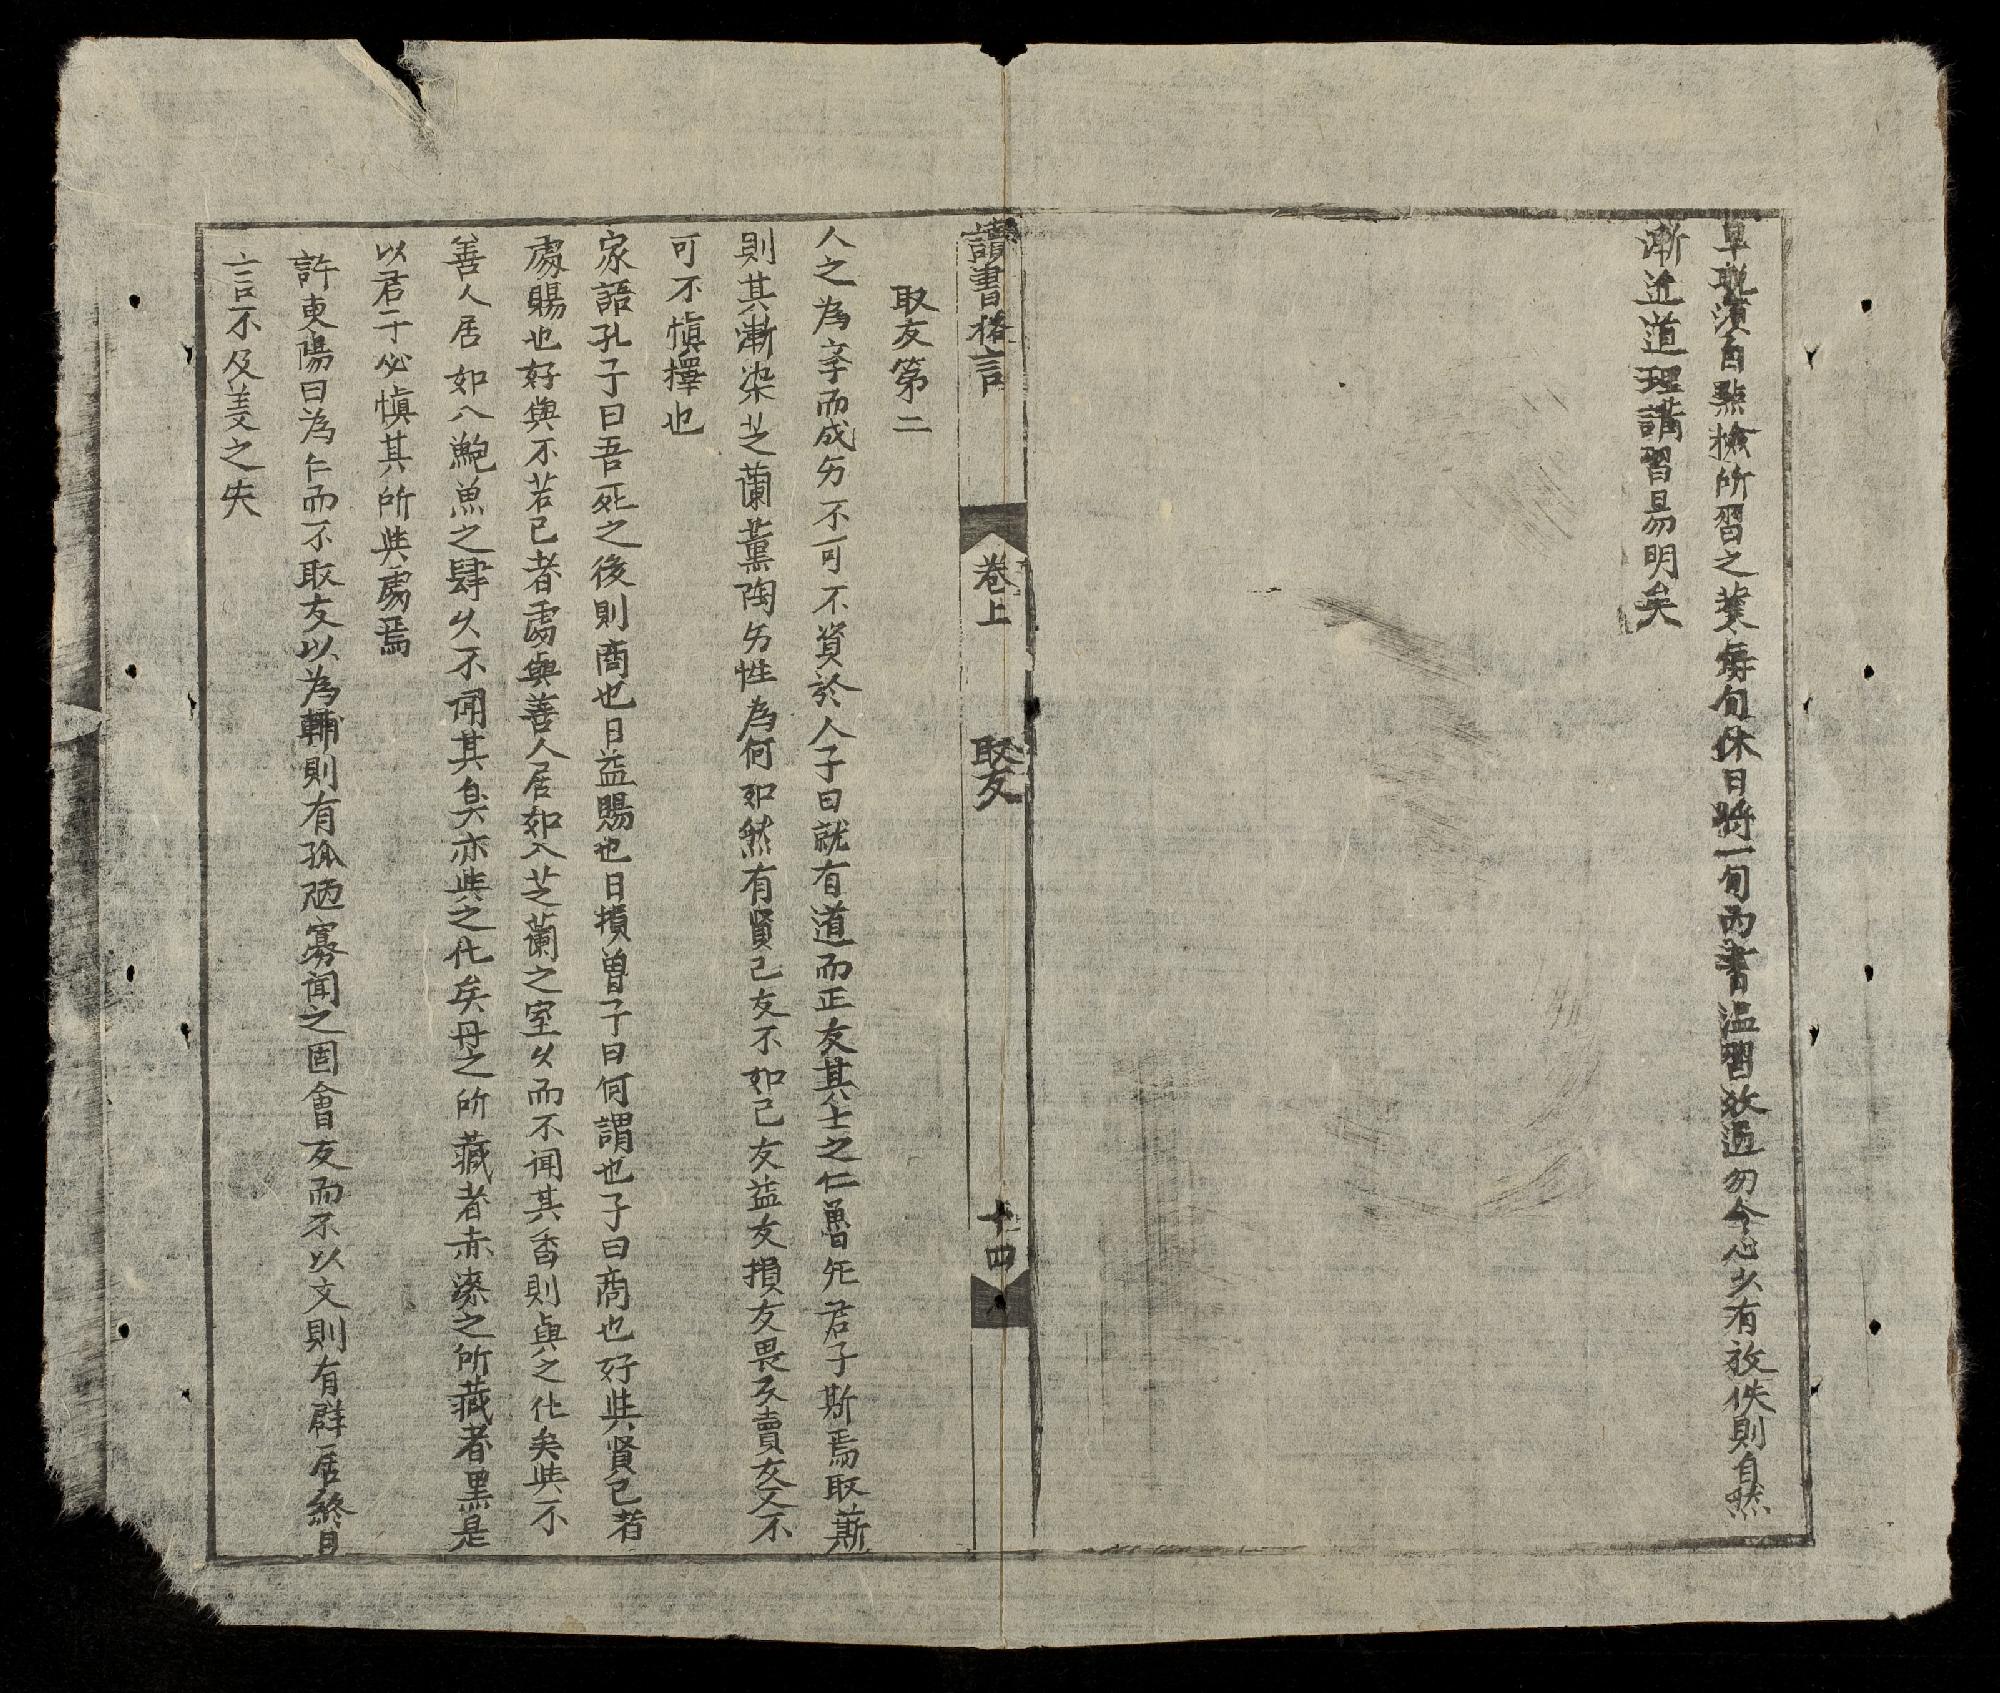 卓取湏自㸃檢所習之業每旬休日將一旬內書温習放過勿令心少有放佚則自然
漸近道理講習易明矣
讀書格言
卷上
取友
十四
取友第二
人之為孝而成㔹不可不資於人子曰就有道而正友其士之仁魯旡君子斯焉取斯
則其漸染芝蘭薰陶㔹性為何如然有賢己友不如己友益友損友畏友賣友又不
可不慎擇也
家語孔子曰吾死之後則商也日益賜也日損曽子曰何謂也子曰商也好與賢己者
處賜也好與不若己者處與善人居如入芝蘭之室久而不闻其香則與之化矣與不
善人居如入鮑魚之肆久不闻其臭亦與之化矣丹之所藏者赤漆之所藏者黑是
以君子必慎其所與處焉
許東陽曰為仁而不取友以為輔則有孤陋寡闻之固會友而不以文則有群居終日
言不及義之失